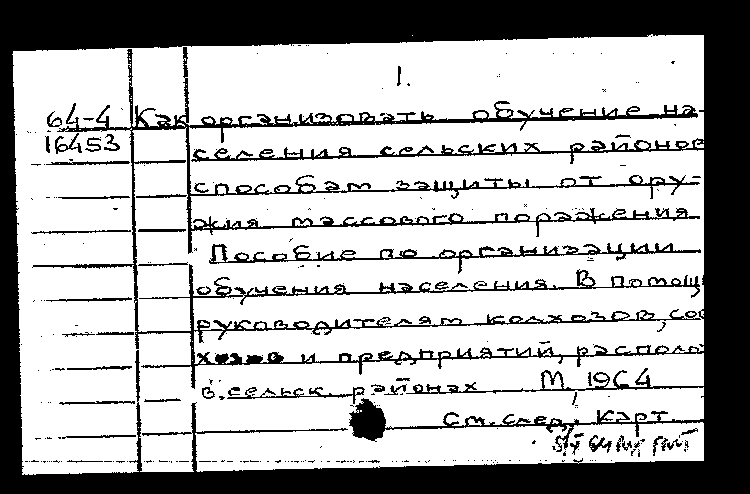 1.
64-4 Как организовать обучение на-
16453 селения сельских районов
способам защиты от ору-
жия массового поражения
Пособие по организации
обучения населения. В помощь
руководителям колхозов, сов
хозов и предприятий, располо
в сельск. районах М. 1964
См. след. карт.